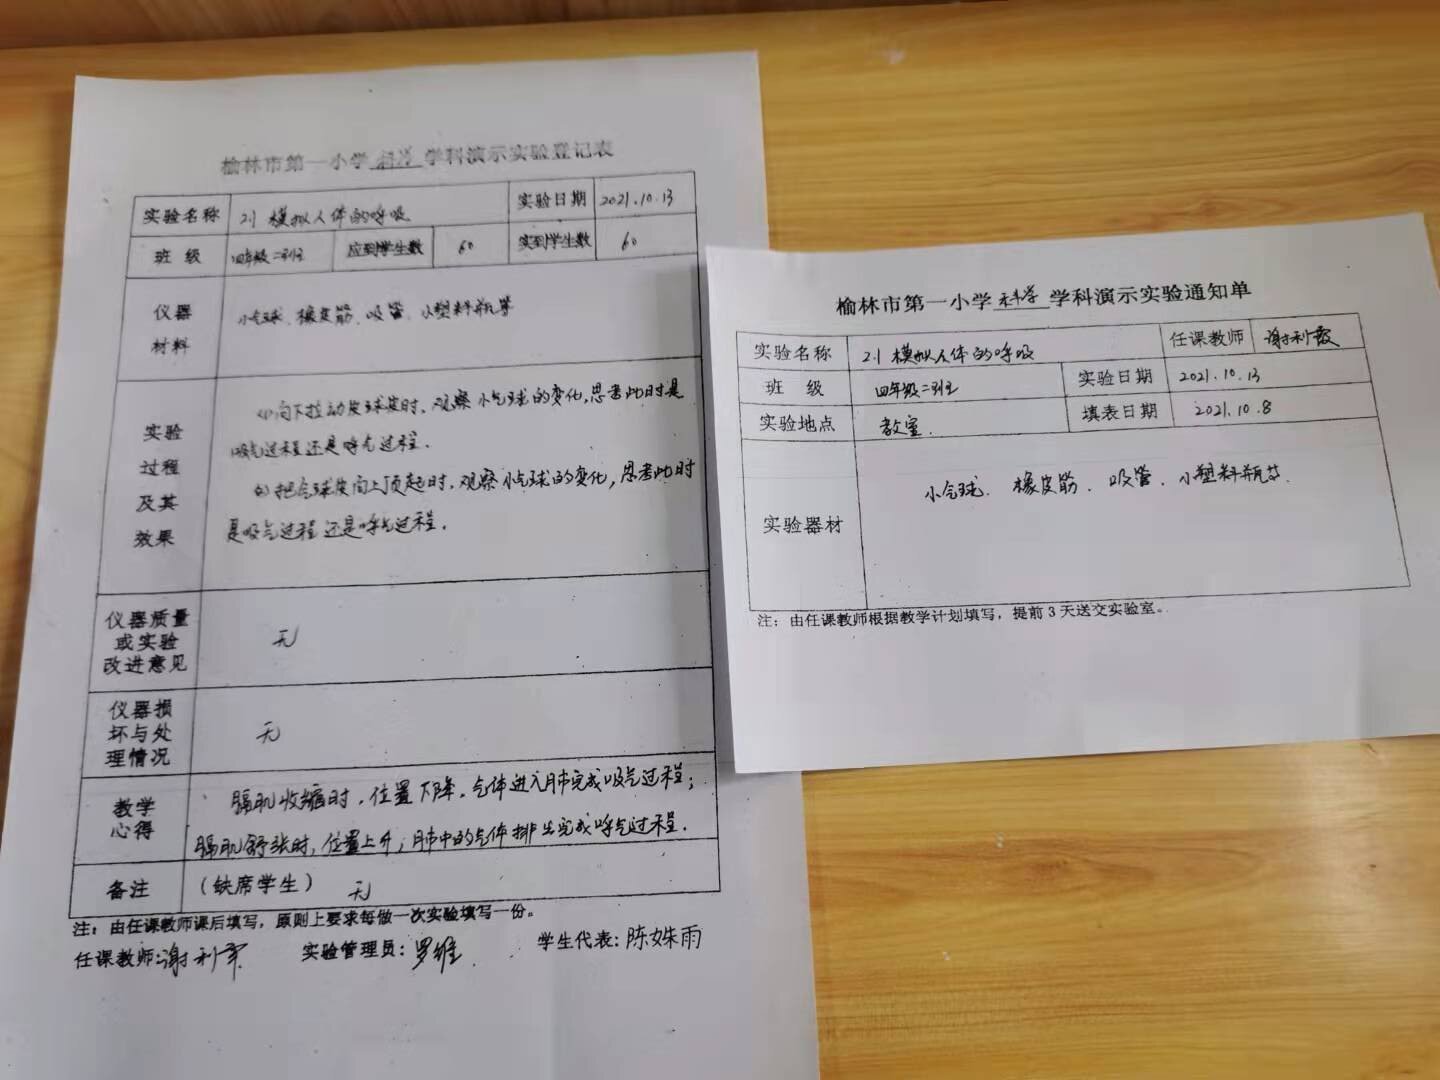 榆林市第一小学科学学科演示实验登记表
实验名称 2.1 模拟人体的呼吸 实验日期 2021.10.13
班 级 四年级二班 应到学生数 60 实到学生数 60
仪器
材料
小气球、橡皮筋、吸管、小塑料瓶等
实验
过程
及其
效果
向下拉动气球皮时,观察小气球的变化,思考此时是
吸气过程还是呼气过程.
把气球皮向上顶起时,观察小气球的变化,思考此时
是吸气过程还是呼气过程.
仪器质量
或实验
改进意见
无
仪器损
坏与处
理情况
无
教学
心得
膈肌收缩时,位置下降,气体进入肺完成吸气过程;
膈肌舒张时,位置上升;肺中的气体排出完成呼气过程.
备注 (缺席学生) 无
注:由任课教师课后填写,原则上要求每做一次实验填写一份。
任课教师:谢利霞 实验管理员:罗维 学生代表:陈姝雨
榆林市第一小学科学学科演示实验通知单
实验名称 2.1 模拟人体的呼吸 任课教师 谢利霞
班 级 四年级二班 实验日期 2021.10.13
实验地点 教室. 填表日期 2021.10.8
实验器材 小气球、橡皮筋、吸管、小塑料瓶等.
注:由任课教师根据教学计划填写,提前 3 天送交实验室。